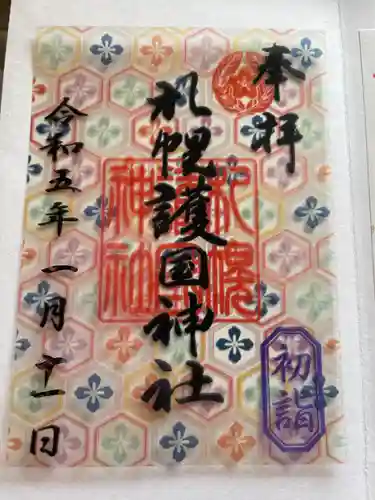 奉拝
札幌護国神社
札幌護国神社
初詣
令和五年一月十一日